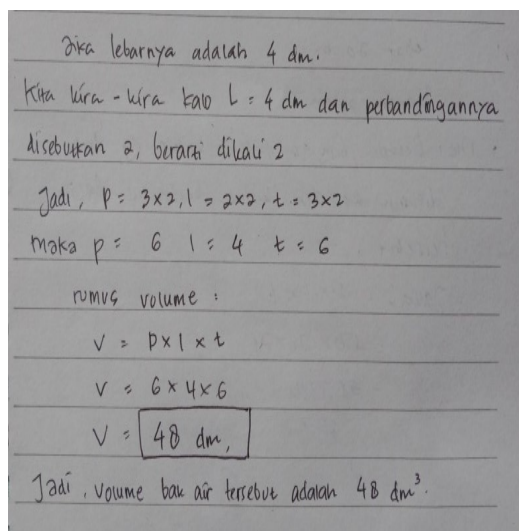 Jika lebarnya adalah 4 dm.
Kita kira - kira kalo L = 4 dm dan perbandingannya
disebutkan 2, berarti dikali 2
Jadi, p = 3x2, l = 2x2, t = 3x2
maka p = 6 l = 4 t = 6
rumus volume :
V = p x l x t
V = 6 x 4 x 6
V = 48 dm,
Jadi, volume bak air tersebut adalah 48 dm³.